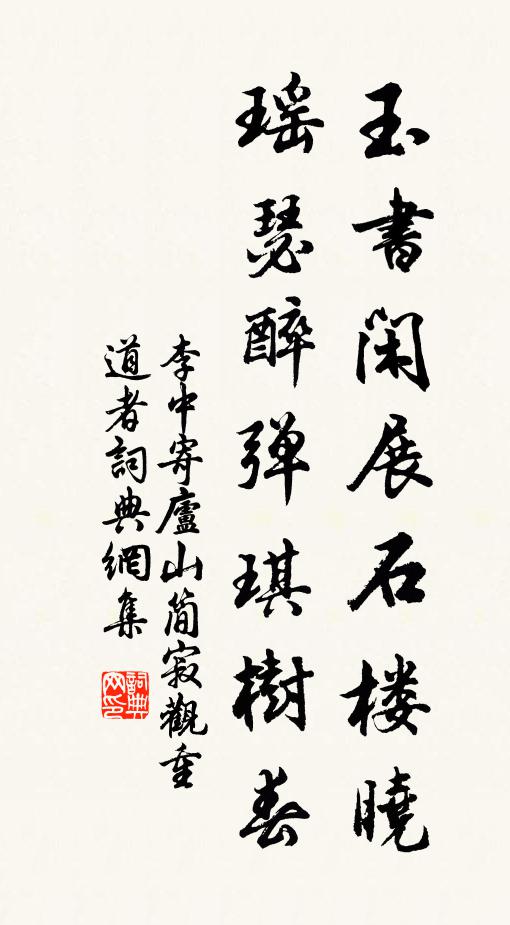 玉書閑展石楼曉
瑶瑟醉弹琪樹春
李中寄廬山簡寂觀重
道者詞典網集
詞典
网印